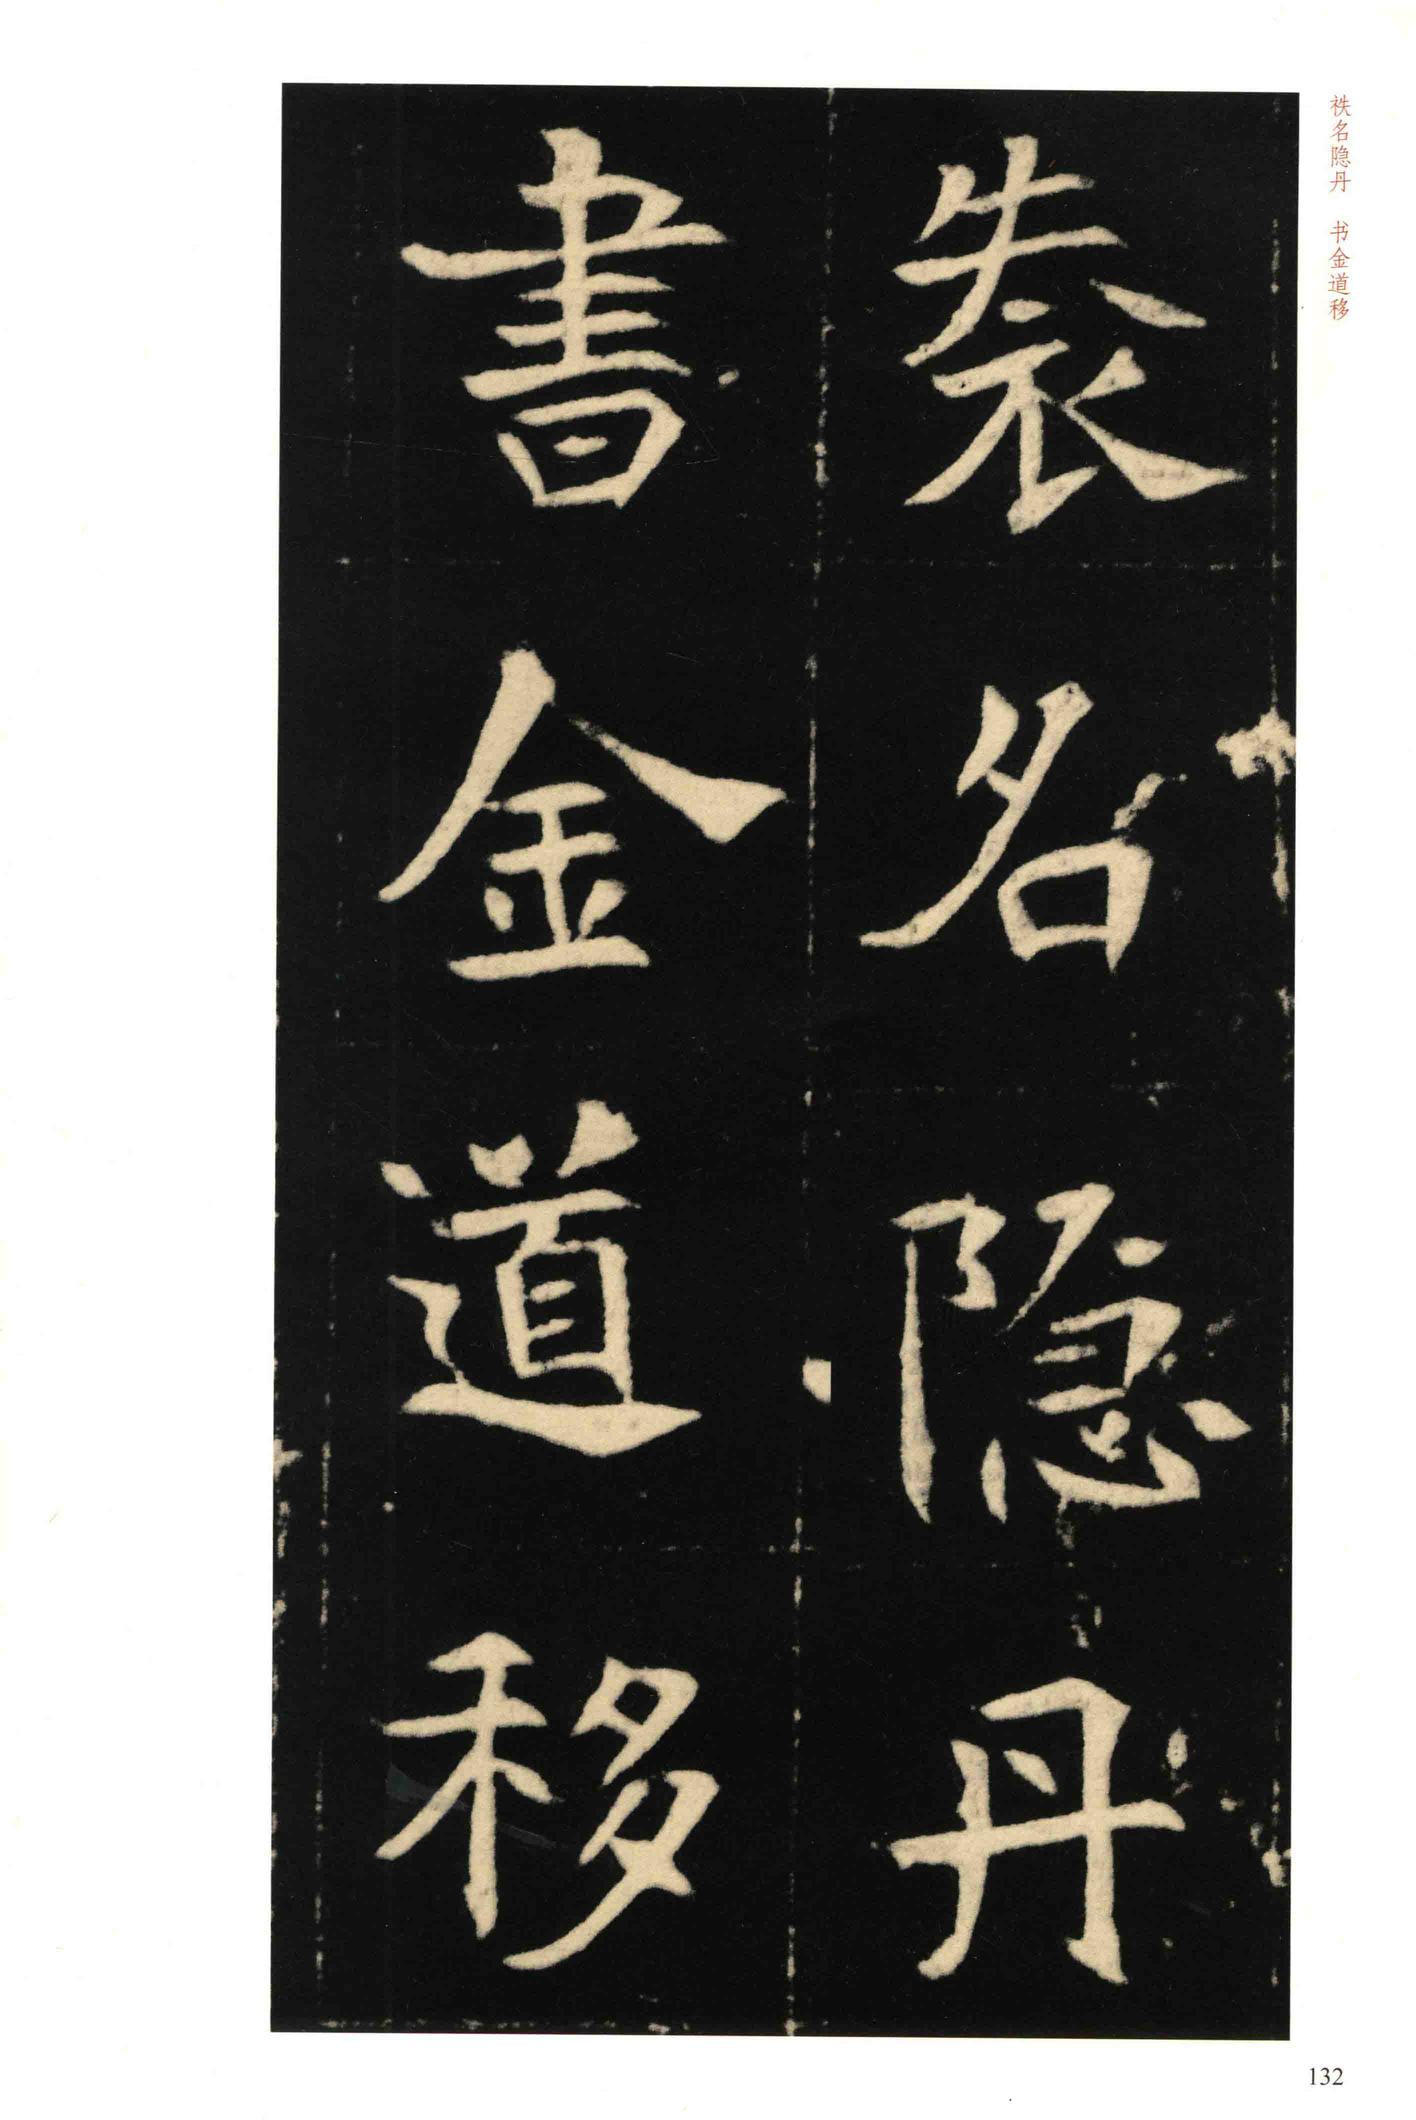 袟名隐丹 书金道移
袠名隱丹
書金道移
132